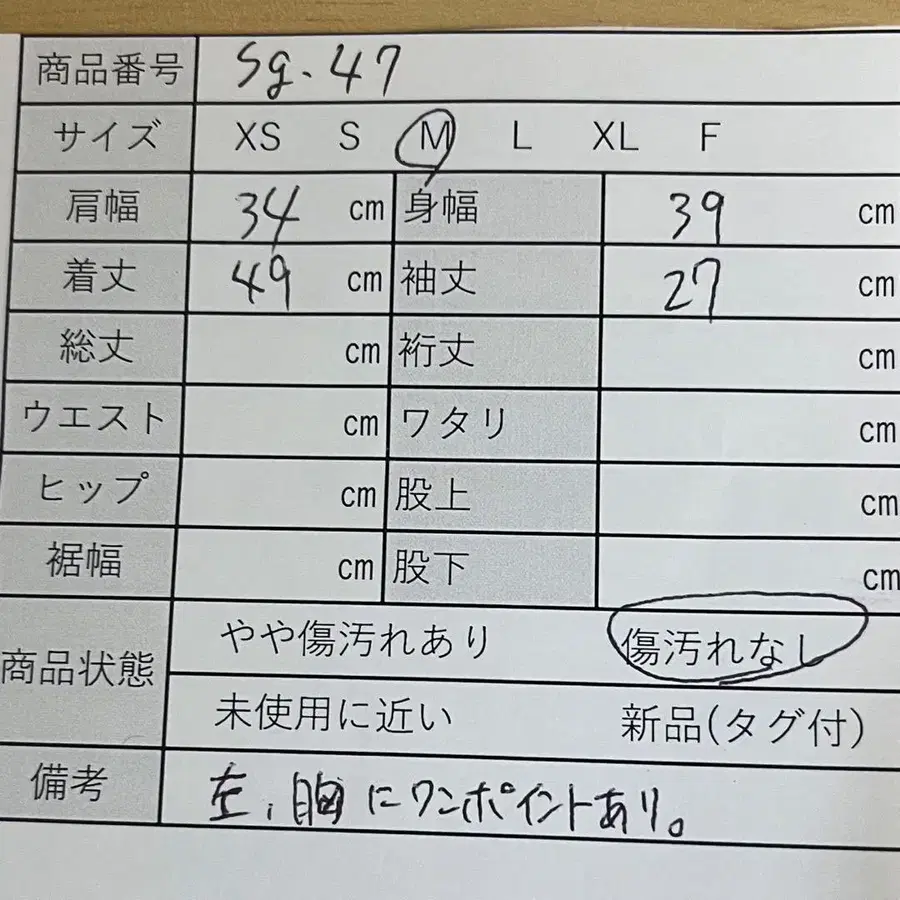 商品番号 Sg.47
サイズ XS S M L XL F
肩幅 34 cm 身幅 39 cm
着丈 49 cm 袖丈 27 cm
総丈 cm 裄丈 cm
ウエスト cm ワタリ cm
ヒップ cm 股上 cm
裾幅 cm 股下 cm
商品状態 やや傷汚れあり 傷汚れなし
未使用に近い 新品(タグ付)
備考 左,胸にワンポイントあり。